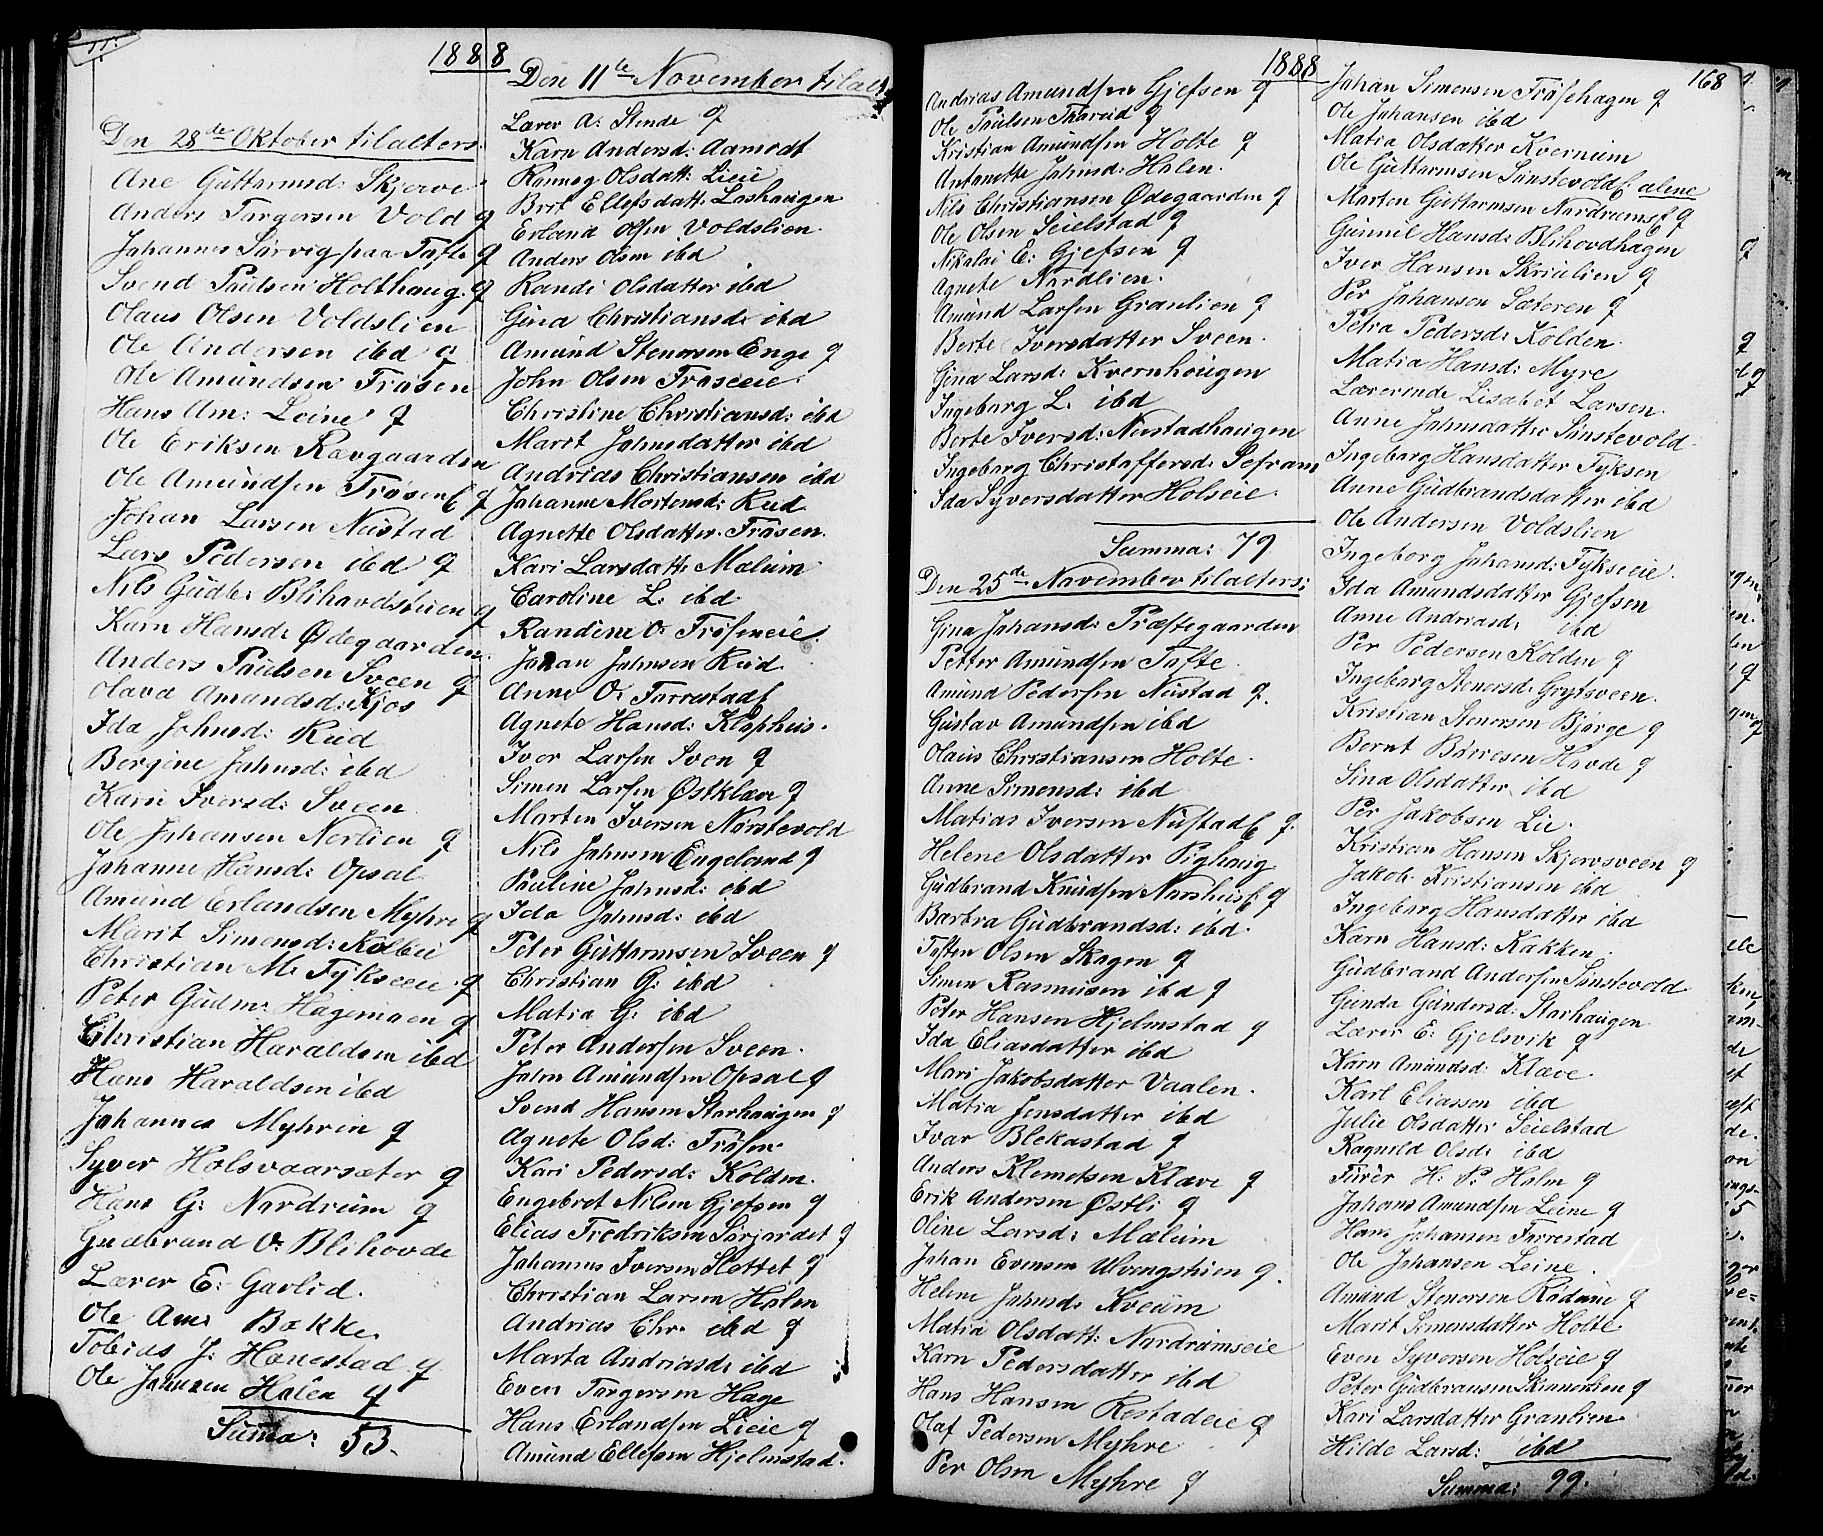 1888
Den 28de Oktober tilalters:
Ane Guttormsd: Skjerve
Anders Torgersen Vold g
Johannes Sørvig paa Tofte g
Svend Paulsen Holthaug. g
Olaus Olsen Voldslien
Ole Andersen ibd g
Ole Amundsen Frøsen
Hans Am: Leine g
Ole Eriksen Ravgaarden
Ole Amundsen Frøsen g
Johan Larsen Nustad
Lars Pedersen ibd g
Nils Gudb: Blihovdstuen g
Karn Hansd: Ødegaarden
Anders Paulsen Sveen g
Olava Amundsd: Kjos
Ida Johnsd: Rud
Bergine Johnsd: ibd
Karn Iversd: Sveen
Ole Johansen Nerlien g
Johanne Hansd: Opsal
Amund Erlandsen Myhre g
Marit Simensd: Kolbeie
Christian M: Fykseeie g
Peter Gudm: Hagemoen g
Christian Haraldsen ibd
Hans Haraldsen ibd
Johannes Myhrin g
Syver Holsvaarsæter g
Hans G: Nordrum g
Gudbrand O: Blihovde
Lærer E: Garlid.
Ole Am: Bakke.
Tobias J: Hanestad g
Ole Johnsen Holen g
Summa: 53.
Den 11te November tilalt
Lærer A: Stende g
Karn Andersd: Aamodt
Ranneg Olsdatt: Lieie
Brit Ellefsdatt: Loshaugen
Erland Olsen Voldslien.
Anders Olsen ibd
Randi Olsdatter ibd
Gina Christiansd: ibd
Amund Stenersen Enge g
John Olsen Froseeie
Christine Christiansd: ibd
Marit Johnsdatter ibd
Andrias Christiansen ibd
Johanne Mortensd: Rud
Agnette Olsdatter Frøsen.
Kari Larsdatt: Mælum
Caroline L. ibd.
Randine O: Frøseneie.
Johan Johnsen Rud.
Anne O: Forrestad
Agnete Hansd: Klophus.
Iver Larsen Sven g
Simen Larsen Østklæve g
Marten Iversen Nørstevold
Nils Johnsen Engeland g
Pauline Johnsd: ibd
Ida Johnsd: ibd
Peter Guttormsen Sveen g
Christian G: ibd
Matia G: ibd
Peter Andersen Sveen.
John Amundsen Opsal g
Svend Hansen Storhaugen g
Agnete Olsd: Frøsen
Kari Pedersd: Kolden.
Engebret Nilsen Gjefsen g
Elias Fredriksen Sørjordet g
Johannes Iversen Slottet g
Christian Larsen Holen
Andrias Chr: ibd g
Marta Andriasd: ibd
Even Torgersen Hage
Hans Erlandsen Lieie g
Amund Ellefsen Hjelmstad.
1888
168
Andrias Amundsen Gjefsen g
Ole Paulsen g
Kristian Amundsen Holte g
Antonette Johnsd: Holen.
Nils Christiansen Ødegaarden g
Ole Olsen Seielstad g
Nikolai E: Gjefsen g
Agnete Nordlien.
Amund Larsen Granlien g
Berte Iversdatter Sveen.
Gina Larsd: Kvernhaugen
Ingeborg L. ibd
Berte Iversd: Nustadhaugen
Ingeborg Christoffersd: Sefram
Ida Syversdatter Holseie.
Summa: 79
Den 25de November tilalters:
Gina Johansd: Præstegaarden
Petter Amundsen Tofte.
Amund Pedersen Nustad g.
Gustav Amundsen ibd
Olaus Christiansen Holte.
Anne Simensd: ibd
Matias Iversen Nustad g.
Helene Olsdatter Pighaug
Gudbrand Knudsen Norshus g
Barbra Gudbrandsd: ibd.
Tosten Olsen Skogen g
Simen Rasmusen ibd g
Peter Hansen Hjelmstad g
Ida Eliasdatter ibd
Mari Jakobsdatter Vaalen.
Matia Jensdatter ibd
Ivar Blekastad g
Anders Klemetsen Klæve g
Erik Andersen Østli g
Oline Larsd: Mælum
Johan Evensen Ulvengstuen g.
Helene Johnsd: Kveum
Matia Olsdatt: Nordrumseie
Karn Pedersdatter ibd
Hans Hansen Restadeie g
Olaf Pedersen Myhre
Per Olsen Myhre g
Johan Simensen Frøsehagen g
Ole Johansen ibd
Matia Olsdatter Kvernum
Ole Guttormsen Sønstevold alene
Morten Guttormsen Nordrums g
Gunnil Hansd: Blihovdhagen
Iver Hansen Skriulien g
Per Johansen Sæteren g
Petra Pedersd: Kolden.
Matia Hansd: Myre
Lærerinde Lisabet Larsen.
Anne Johnsdatter Sønstevold.
Ingeborg Hansdatter Fyksen
Anne Gudbrandsdatter ibd
Ole Andersen Voldslien
Ingeborg Johansd: Fykseeie.
Ida Amundsdatter Gjefsen
Anne Andriasd: ibd
Per Pedersen Kolden g
Ingeborg Stenersd: Grytsveen.
Kristian Stenersen Bjørge g
Bernt Børresen Hovde g
Sina Olsdatter ibd
Per Jakobsen Lie.
Kristian Hansen Skjervsveen g
Jakob Kristiansen ibd
Ingeborg Hansdatter ibd
Karn Hansd: Kakken.
Gudbrand Andersen Sønstevold
Gunda Gundersd: Storhaugen
Lærer E: Gjelsvik g
Karn Amundsd: Klæve.
Karl Eliassen ibd
Julie Olsdatter Seielstad
Ragnild Olsd: ibd
Furer H. P. Holm g
Johans Amundsen Leine g
Hans Johansen Forrestad
Ole Johansen Leine.
Amund Stenersen Rudane g
Marit Simensdatter Holte
Even Syversen Holseie g
Peter Gudbransen Skinnerlien g
Kari Larsdatter Granlien
Hilde Larsd: ibd
Summa: 99.